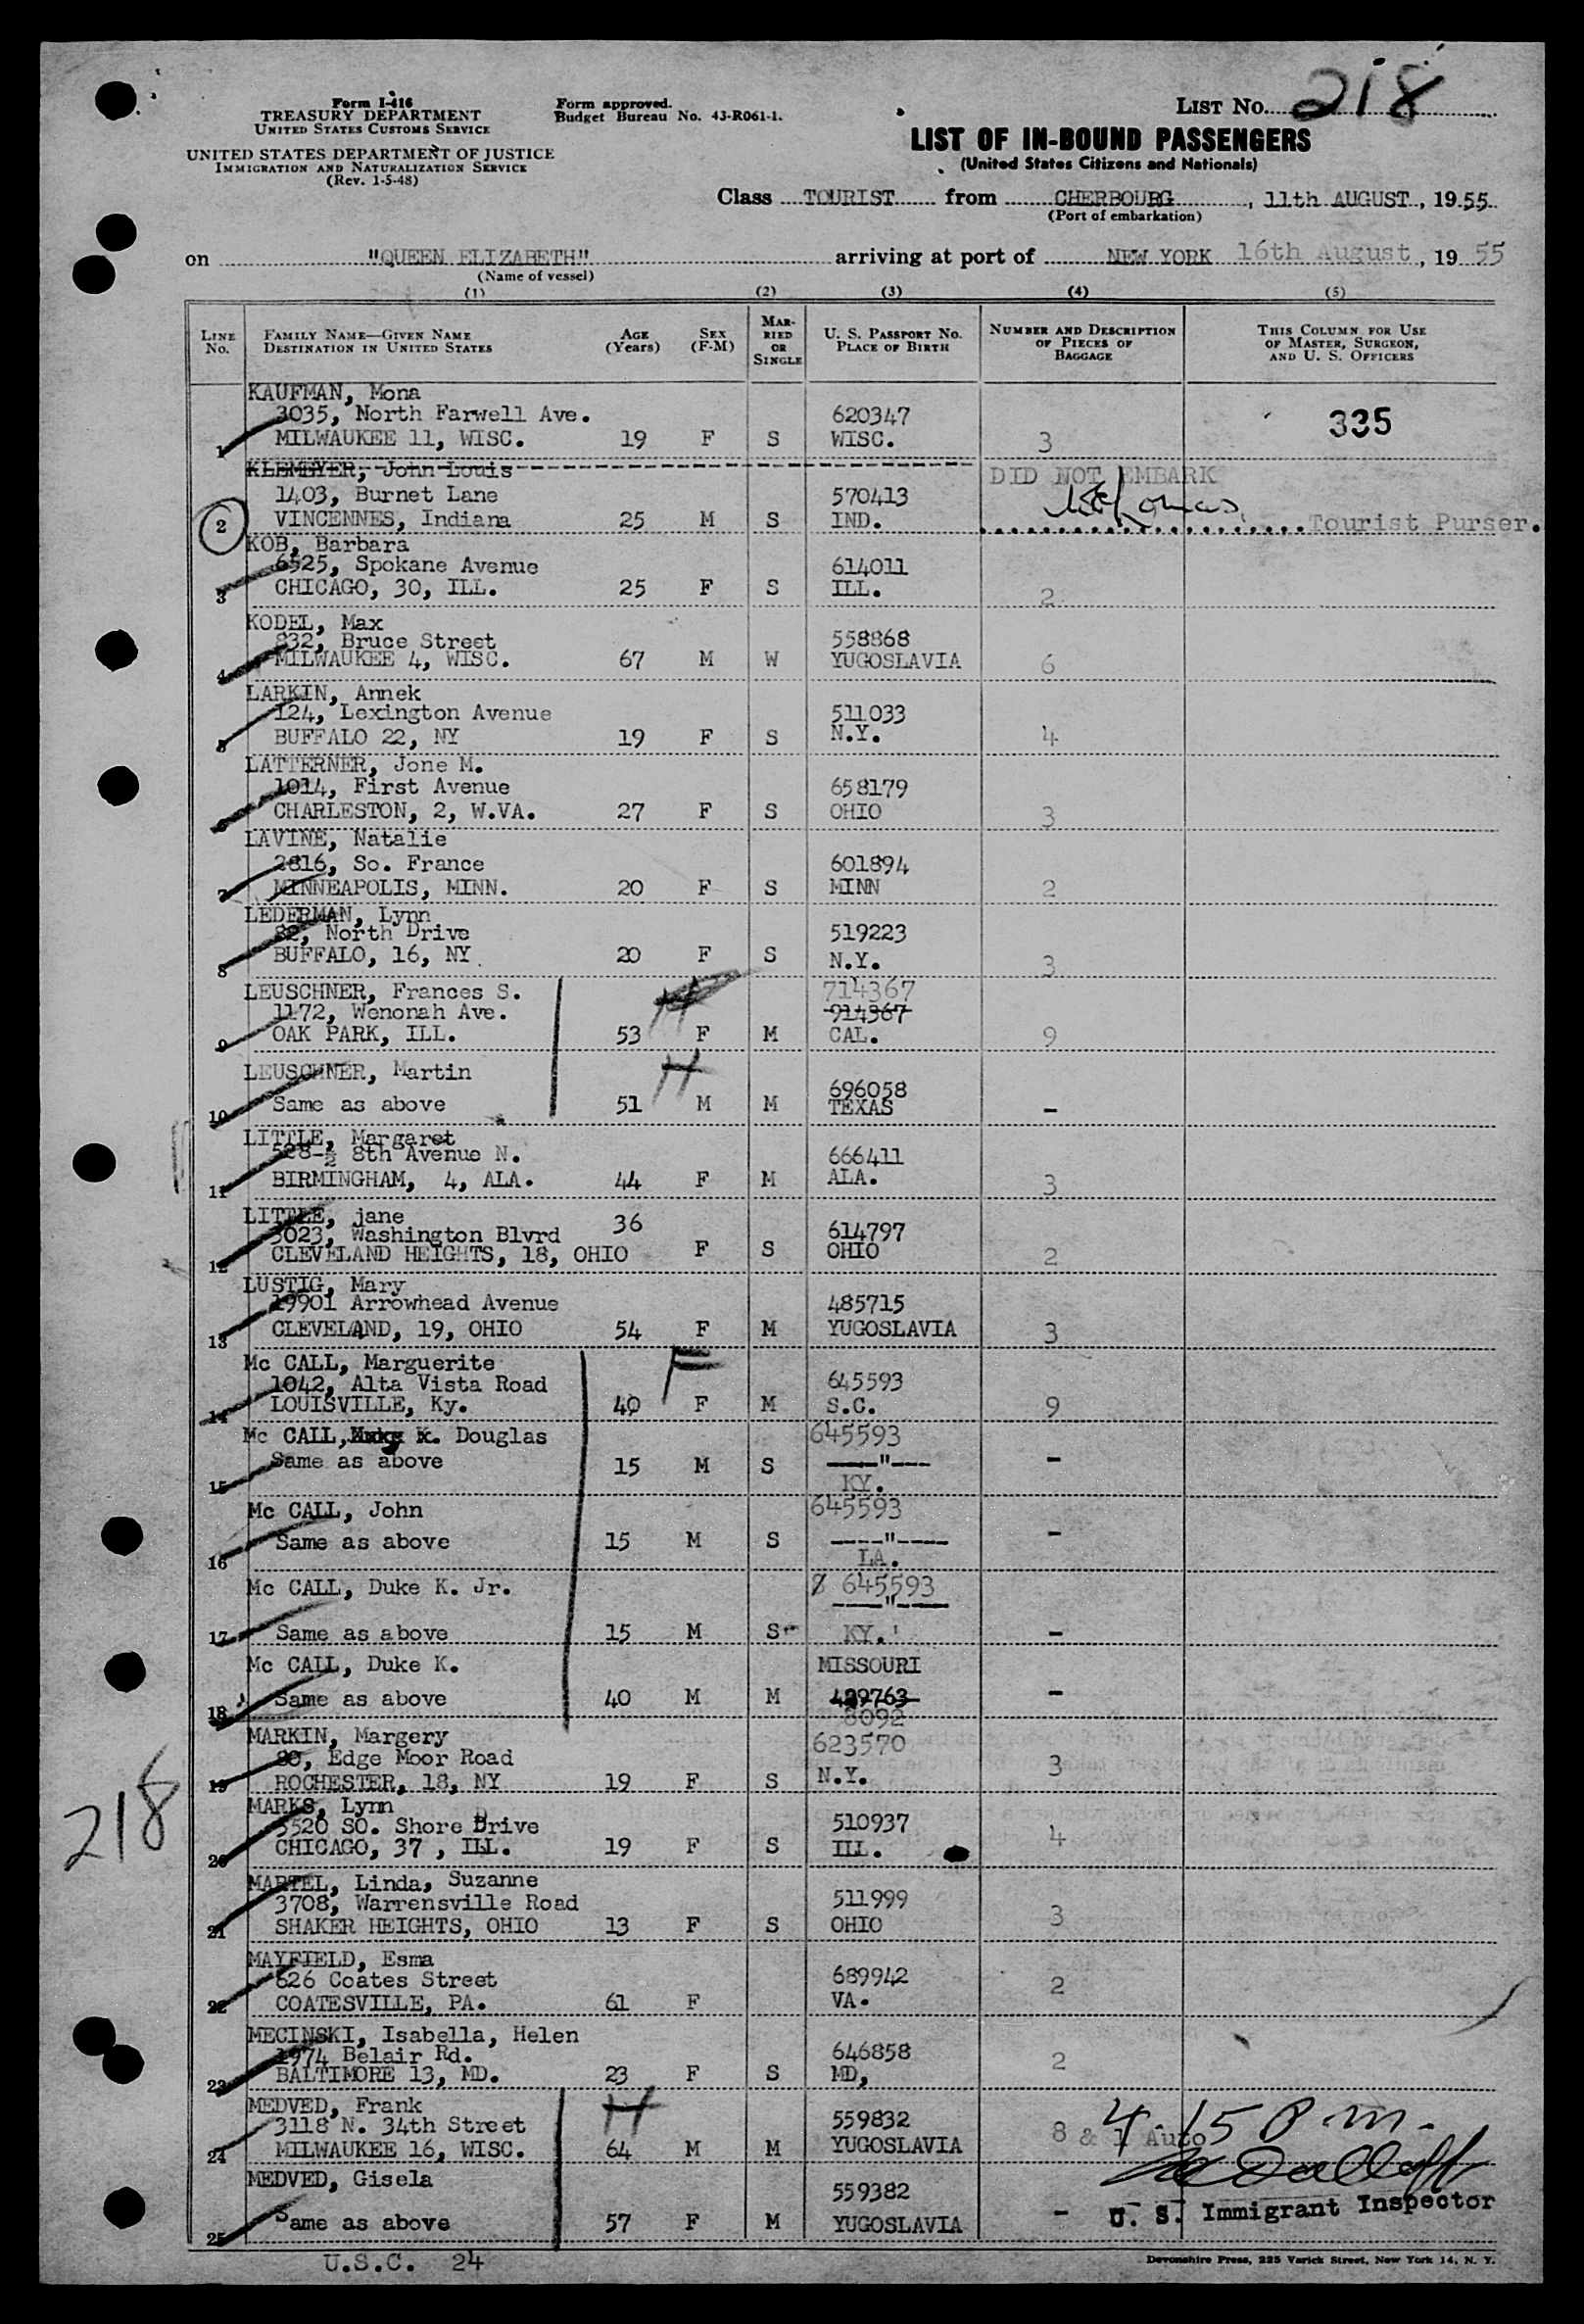 Form I-416
TREASURY DEPARTMENT
UNITED STATES CUSTOMS SERVICE
UNITED STATES DEPARTMENT OF JUSTICE
IMMIGRATION AND NATURALIZATION SERVICE
(Rev. 1-5-48)
Form approved.
Budget Bureau No. 43-R061-1.
LIST No. 218
LIST OF IN-BOUND PASSENGERS
(United States Citizens and Nationals)
Class TOURIST from CHERBOURG, 11th AUGUST, 1955
(Port of embarkation)
on "QUEEN ELIZABETH" arriving at port of NEW YORK 16th August, 19 55
(Name of vessel)
(1) (2) (3) (4) (5)
LINE No. FAMILY NAME—GIVEN NAME DESTINATION IN UNITED STATES AGE (Years) SEX (F-M) MARRIED OR SINGLE U. S. PASSPORT No. PLACE OF BIRTH NUMBER AND DESCRIPTION OF PIECES OF BAGGAGE THIS COLUMN FOR USE OF MASTER, SURGEON, AND U. S. OFFICERS
KAUFMAN, Mona
3035, North Farwell Ave. 620347 335
1 MILWAUKEE 11, WISC. 19 F S WISC. 3
KLEMEYER, John Louis DID NOT EMBARK
1403, Burnet Lane 570413
2 VINCENNES, Indiana 25 M S IND. Tourist Purser.
KOB, Barbara
6525, Spokane Avenue 614011
3 CHICAGO, 30, ILL. 25 F S ILL. 2
KODEL, Max
832, Bruce Street 558868
4 MILWAUKEE 4, WISC. 67 M W YUGOSLAVIA 6
LARKIN, Annek
124, Lexington Avenue 511033
5 BUFFALO 22, NY 19 F S N.Y. 4
LATTERNER, Jone M.
1014, First Avenue 658179
6 CHARLESTON, 2, W.VA. 27 F S OHIO 3
LAVINE, Natalie
2816, So. France 601894
7 MINNEAPOLIS, MINN. 20 F S MINN 2
LEDERMAN, Lynn
82, North Drive 519223
8 BUFFALO, 16, NY. 20 F S N.Y. 3
LEUSCHNER, Frances S. 714367
1172, Wenonah Ave. 914367
9 OAK PARK, ILL. 53 F M CAL. 9
LEUSCHNER, Martin H 696058
10 Same as above 51 M M TEXAS -
LITTLE, Margaret
528-½ 8th Avenue N. 666411
11 BIRMINGHAM, 4, ALA. 44 F M ALA. 3
LITTLE, jane 36
3023, Washington Blvrd 614797
12 CLEVELAND HEIGHTS, 18, OHIO F S OHIO 2
LUSTIG, Mary
19901 Arrowhead Avenue 485715
13 CLEVELAND, 19, OHIO 54 F M YUGOSLAVIA 3
Mc CALL, Marguerite F
1042, Alta Vista Road 645593
14 LOUISVILLE, Ky. 40 F M S.C. 9
Mc CALL, Douglas 645593
15 Same as above 15 M S ----"--- KY. -
Mc CALL, John 645593
16 Same as above 15 M S ----"---- LA. -
Mc CALL, Duke K. Jr. 645593
----"----
17 Same as above 15 M S KY. -
Mc CALL, Duke K. MISSOURI
18 Same as above 40 M M 499763 -
8092
MARKIN, Margery 623570
80, Edge Moor Road
19 ROCHESTER, 18, NY 19 F S N.Y. 3
218
MARKS, Lynn
5520 SO. Shore Drive 510937
20 CHICAGO, 37 , ILL. 19 F S ILL. 4
MARTEL, Linda, Suzanne
3708, Warrensville Road 511999
21 SHAKER HEIGHTS, OHIO 13 F S OHIO 3
MAYFIELD, Esma
626 Coates Street 689942
22 COATESVILLE, PA. 61 F VA. 2
MECINSKI, Isabella, Helen
1974 Belair Rd. 646858
23 BALTIMORE 13, MD. 23 F S MD, 2
MEDVED, Frank H
3118 N. 34th Street 559832 8 & 1 Auto 4.15 P.m.
24 MILWAUKEE 16, WISC. 64 M M YUGOSLAVIA
MEDVED, Gisela 559382
25 Same as above 57 F M YUGOSLAVIA - U. S. Immigrant Inspector
U.S.C. 24
Devonshire Press, 225 Varick Street, New York 14, N. Y.